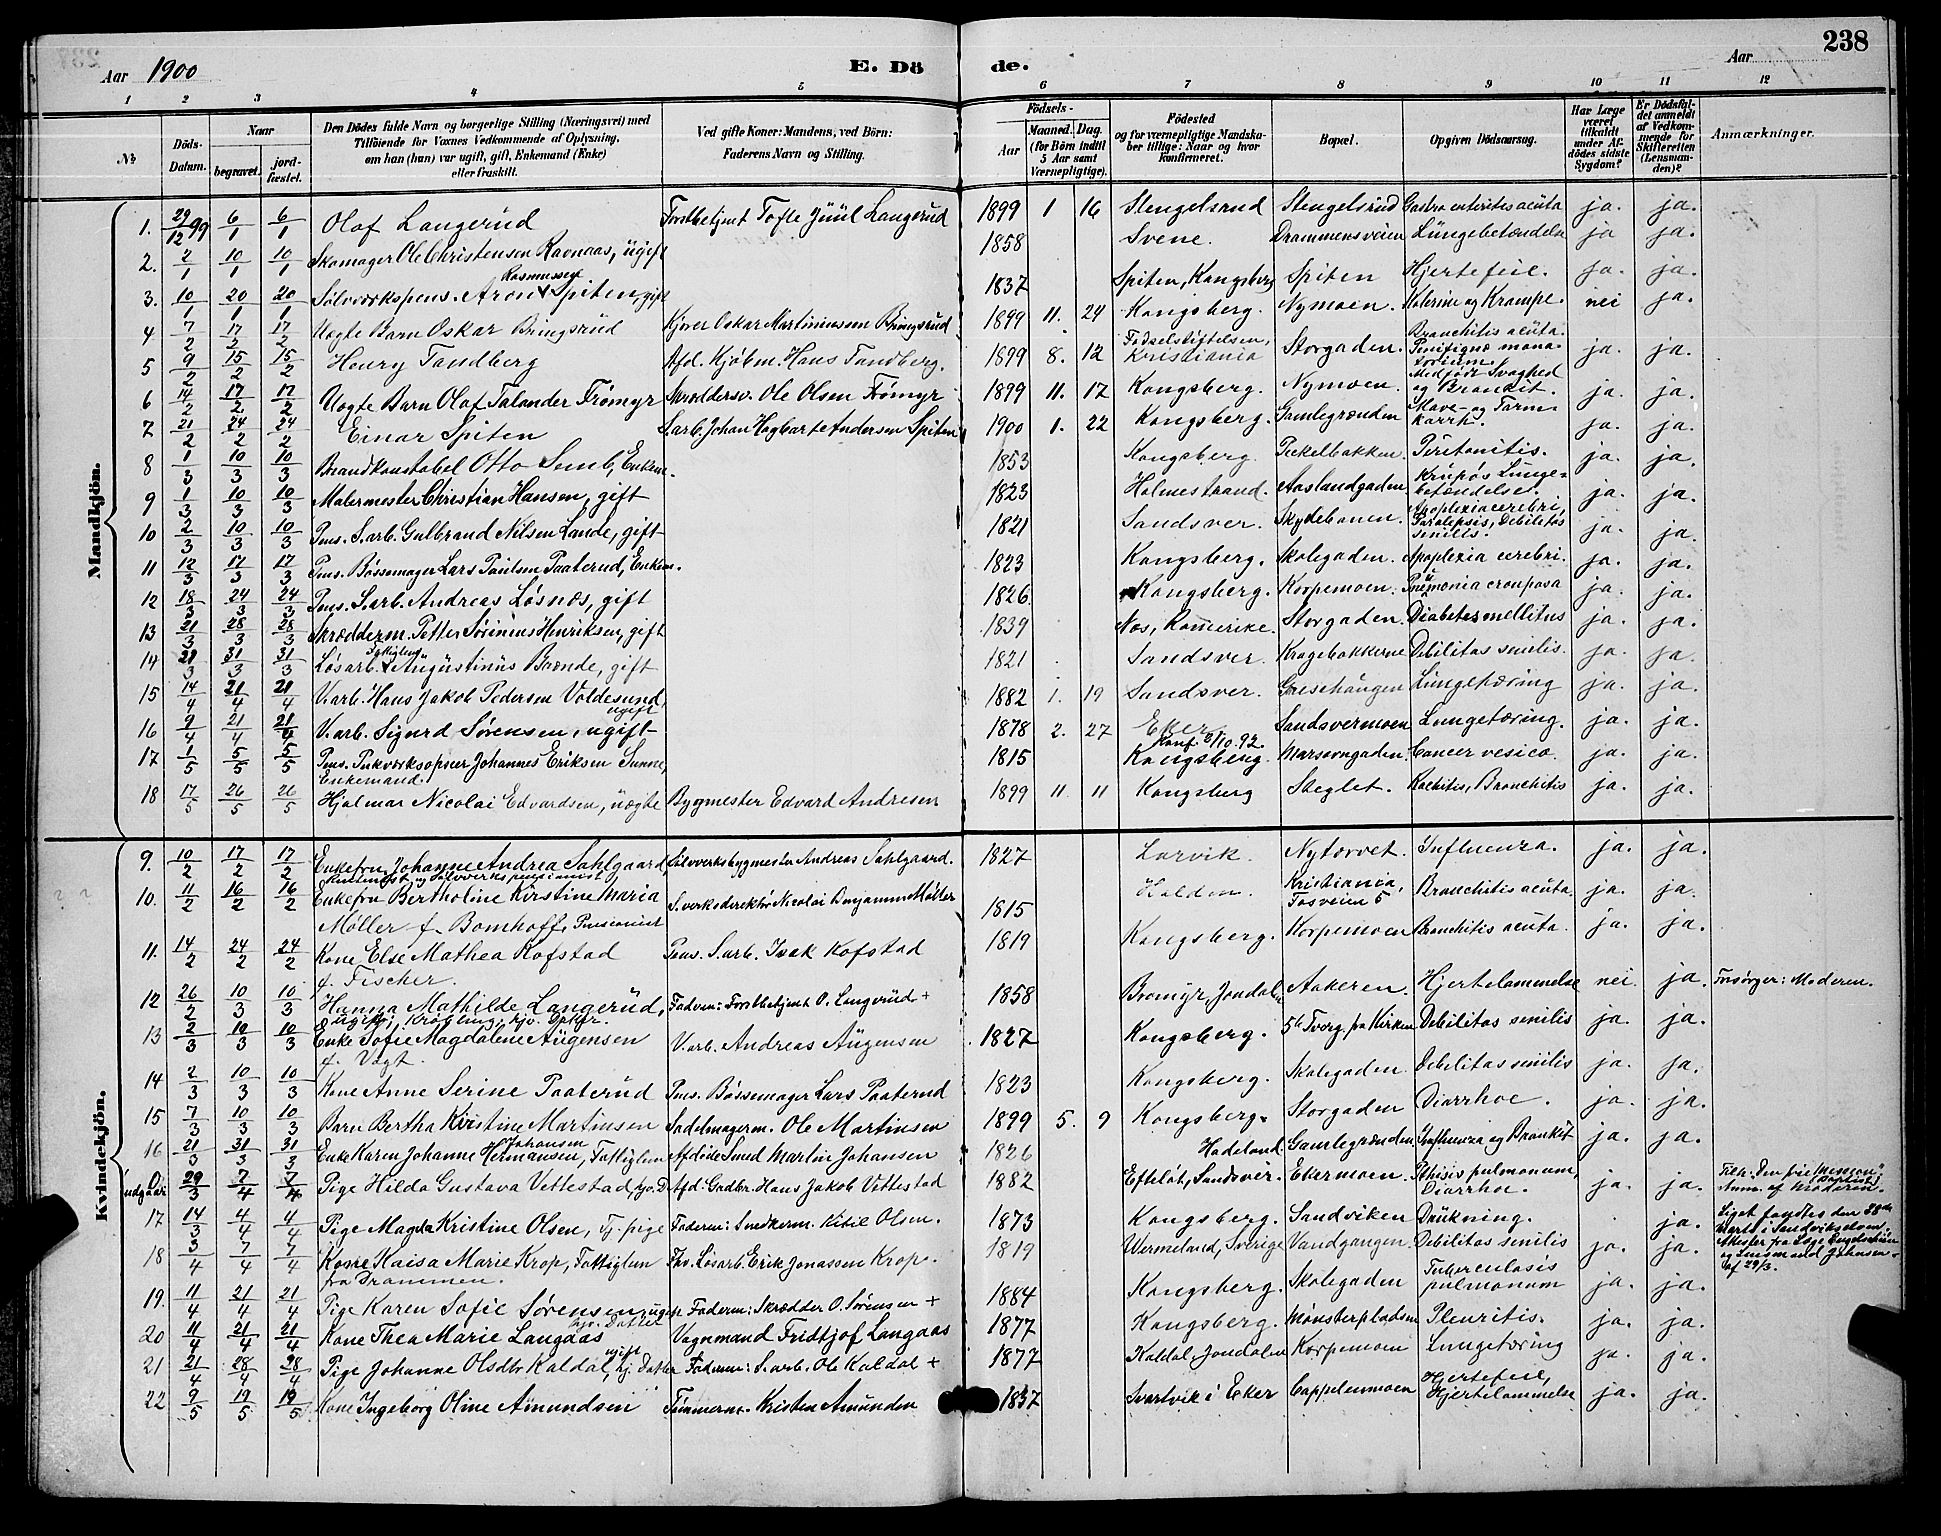 238
Aar 1900
E. Dö
de.
Aar
1 2 3 4 5 6 7 8 9 10 11 12
№
Döds-Datum.
Naar
begravet.
jord-fæstet.
Den Dödes fulde Navn og borgerlige Stilling (Næringsvei) med
Tilföiende for Voxnes Vedkommende af Oplysning,
om han (hun) var ugift, gift, Enkemand (Enke)
eller fraskilt.
Ved gifte Koner: Mandens, ved Börn:
Faderens Navn og Stilling.
Födsels-
Aar
Maaned. Dag.
(for Börn indtil
5 Aar samt
Værnepligtige).
Födested
og for værnepligtige Mandska-
ber tillige: Naar og hvor
konfirmeret.
Bopæl.
Opgiven Dödsaarsag.
Har Læge
været
tilkaldt
under Af-
dödes sidste
Sygdom?
Er Dödsfal-
det anmeldt
af Vedkom-
mende for
Skifteretten
(Lensman-
den)?
Anmærkninger.
Mandkjön.
1. 29/12 99 6/1 6/1 Olaf Langerud Forstbetjent Tofte Juul Langerud 1899 1 16 Stengelsrud Stengelsrud Gastro enteritis acuta ja. ja.
2. 2/1 10/1 10/1 Skomager Ole Christensen Ravnaas, ugift 1858 Svene. Drammensveien Lungebetændelse ja ja.
3. 10/1 20/1 20/1 Sølvværkspens. Aron Rasmussen Spiten, gift 1837 Spiten, Kongsberg Spiten Hjertefeil. ja. ja.
4 7/2 17/2 17/2 Uægte Barn Oskar Bringsrud Kjører Oskar Martiniussen Bringsrud 1899 11. 24 Kongsberg. Nymoen. Kolerine og Krampe. nei ja.
5 9/2 15/2 15/2 Henry Tandberg Afd. Kjøbm. Hans Tandberg. 1899 8. 12 Fødselsstiftelsen, Kristiania Storgaden. Bronchitis acuta. ja. ja.
6 14/2 17/2 17/2 Uægte Barn Olaf Talander Frømyr Skræddersv. Ole Olsen Frømyr 1899 11. 17 Kongsberg. Nymoen. Medfødt Svaghed og Bronkit. ja. ja.
7 21/2 24/2 24/2 Einar Spiten S.arb. Johan Hagbart Andersen Spiten 1900 1. 22 Kongsberg. Gamlegrænden Mave- og Tarmkarrh. ja. ja.
8 1/3 10/3 10/3 Brandkonstabel Otto Semb, Enkem. 1853 Kongsberg Pekelbakken. Peritonitis. ja. ja.
9 1/3 10/3 10/3 Malermester Christian Hansen, gift 1823 Holmestrand. Aaslandgaden Krupøs Lungebetændelse. ja. ja.
10 2/3 10/3 10/3 Pens. S.arb. Gulbrand Nilsen Lande, gift 1821 Sandsver. Skydebanen. Apoplexia cerebri, Paralepsis, Debilitas senilis. ja. ja.
11 12/3 17/3 17/3 Pens. Bøssemager Lars Paulsen Paaterud, Enkem. 1823 Kongsberg. Skolegaden. Apoplexia cerebri. ja. ja.
12 18/3 24/3 24/3 Pens. S.arb. Andreas Løsnæs, gift 1826 Kongsberg. Korpemoen. Pneumonia crouposa ja. ja.
13 21/3 28/3 28/3 Skrædderm. Petter Sørinius Henriksen, gift 1839 Næs, Romerike. Storgaden. Diabetes mellitus ja. ja.
14 21/3 31/3 31/3 Løsarb. Augustinus Brænde, gift 1821 Sandsver. Kragebakkerne Debilitas senilis. ja. ja.
15 14/4 21/4 21/4 V.arb. Hans Jakob Pedersen Voldesund, ugift 1882 1. 19 Sandsver. Græsehaugen Lungetæring ja. ja.
16 9/4 21/4 21/4 V.arb. Sigurd Sørensen, ugift 1878 2. 27 Eker Konf. 2/10.92. Sandsvermoen Lungetæring. ja. ja.
17 1/5 5/5 5/5 Pens. Pukværksopser Johannes Eriksen Sunne, Enkemand. 1815 Kongsberg Cancer vesicæ. ja. ja.
18 17/5 26/5 26/5 Hjalmar Nicolai Edvardsen, uægte Bygmester Edvard Andresen 1899 11 11 Kongsberg Steglet. Rachitis, Bronchitis ja. ja.
Kvindekjön.
9. 10/2 17/2 17/2 Enkefru Johanne Andrea Sahlgaard, Sølvverksbygmester Andreas Sahlgaard. 1827 Larvik. Nytorvet. Influenza. ja. ja.
10. 11/2 16/2 16/2 Enkefru Bertholine Kirstine Maria Møller f. Bomhoff, Pensionist S.verksdirektør Nicolai Benjamin Møller 1815 Halden. Kristiania, Fosveien 5 Bronchitis acuta. ja. ja.
11. 14/2 24/2 24/2 Kone Else Mathea Kofstad f. Fischer. Pens. S.arb. Isak Kofstad 1819 Kongsberg. Korpemoen Bronchitis acuta. ja. ja.
12 26/2 10/3 10/3 Hanna Mathilde Langerud, ugift, Krøpling, hjv. Datter. Faderen: Forstbetjent O. Langerud + 1858 Bromyr Jondalen Aakeren. Hjertelammelse nei. ja. Forsørger: Moderen.
13 2/3 10/3 10/3 Enke Sofie Magdalene Augensen f. Vogt. V.arb. Andreas Augensen 1827 Kongsberg. 5te Tverg. fra Kirken Debilitas senilis ja. ja.
14 2/3 10/3 10/3 Kone Anne Serine Paaterud Pens. Bøssemager Lars Paaterud 1823 Kongsberg. Skolegaden. Debilitas senilis ja. ja.
15 7/3 10/3 10/3 Barn Bertha Kirstine Martinsen Sadelmagerm. Ole Martinsen 1899 5. 9 Kongsberg. Storgaden Diarrhoe. ja. ja.
16 21/3 31/3 31/3 Enke Karen Johanne Hermansen Johansen, Fattiglem Afdøde Smed Martin Johansen 1826 Hadeland Gamlegrænden Influenza og Bronkit ja. ja.
Udgaar 29/3 7/4 7/4 Pige Hilda Gustava Vettestad, hjv. D. Afd. Gadbr. Hans Jakob Vettestad 1882 Efteløt, Sandsvær. Ekermoen. Phthisis pulmonum, Diarrhoe. ja. ja. Tilh. "Den frie Mission" (Baptist) Anm. af Moderen.
17 14/3 4/4 4/4 Pige Magda Kristine Olsen, Tj. pige Faderen: Snedkerm. Kitil Olsen. 1873 Kongsberg. Sandviken Drukning. ja. Liget fandtes den 28de Marts i Sandviksdam. Attester fra Læge Engebrechtsen og Lensmand Johansen af 29/3.
18 3/4 7/4 7/4 Kone Kaisa Marie Krop, Fattiglem fra Drammen. Fhs. Løsarb. Erik Jonassen Krop. 1819 Wermeland, Sverige Vandgangen. Debilitas senilis ja. ja.
19. 11/4 21/4 21/4 Pige Karen Sofie Sørensen, ugift hjv. Datter Faderen: Skrædder O. Sørensen + 1884 Kongsberg. Skolegaden Tuberculosis pulmonum ja. ja.
20 11/4 21/4 21/4 Kone Thea Marie Langaas Vognmand Fridtjof Langaas 1877 Kongsberg. Mønsterpladsen Pleuritis. ja. ja.
21 21/4 28/4 28/4 Pige Johanne Olsdtr Kaldal, ugift hj. Datter Faderen: S.arb. Ole Kaldal + 1877 Kaldal, Jondalen Korpemoen Lungetæring ja. ja.
22 9/5 19/5 19/5 Kone Ingeborg Oline Amundsen Tømmerm. Kristen Amundsen 1837 Svartvik i Eker Cappelenmoen Hjertefeil, Hjertelammelse ja. ja.